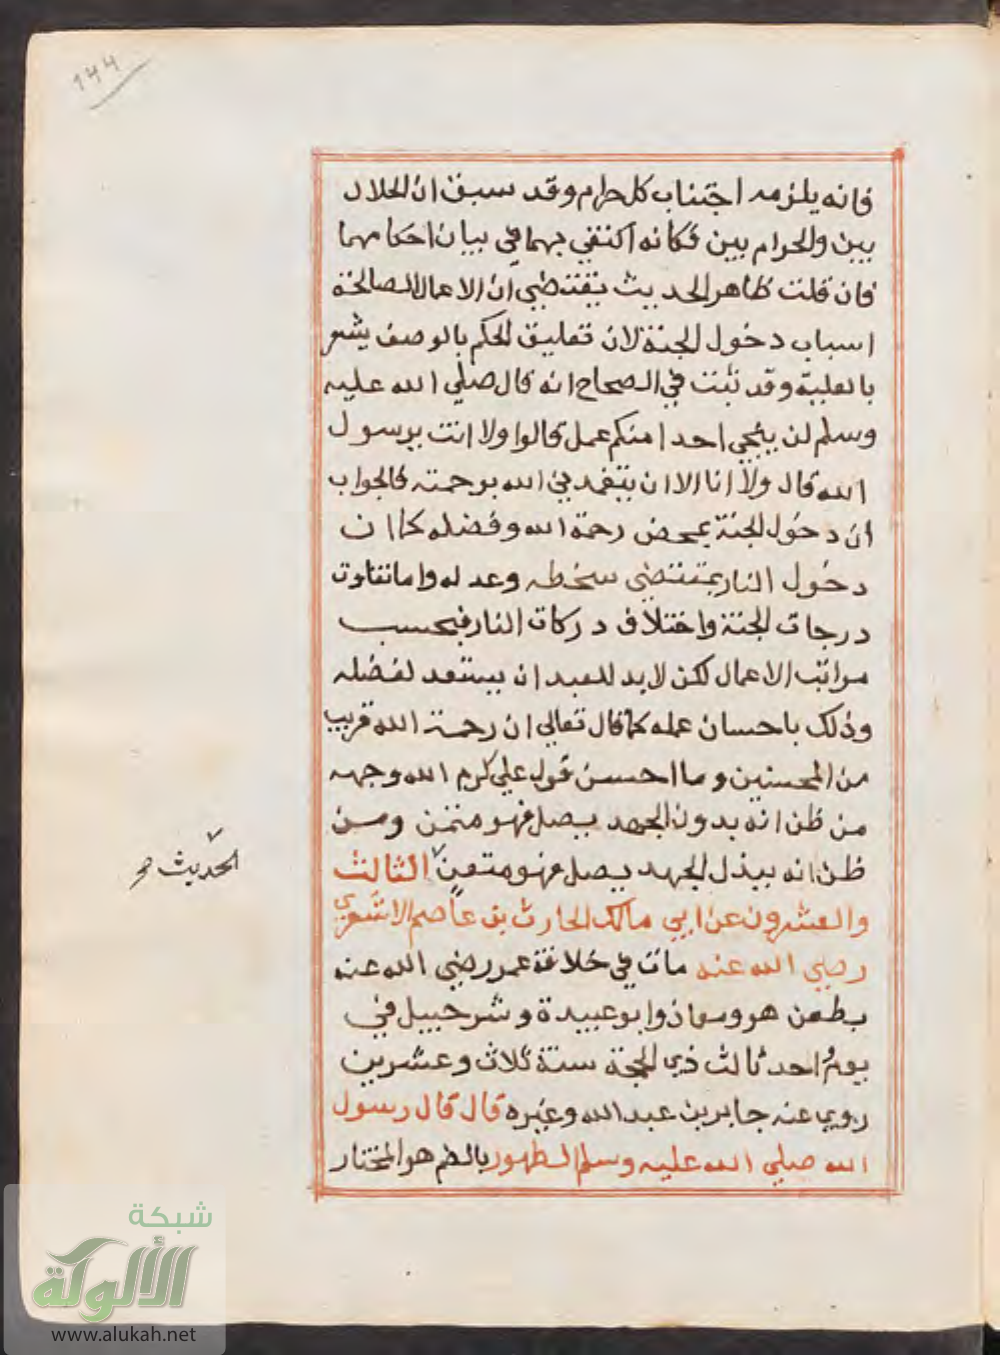 ١٤٤
فانه يلزمه اجتناب كل حرام وقد سبق ان الحلال
بين والحرام بين فكانه اكتفي بهما في بيان احكامهما
فان قلت ظاهر الحديث يقتضي ان الاعمال الصالحة
اسباب دخول الجنة لان تعليق الحكم بالوصف يشعر
بالعلية وقد ثبت في الصحاح انه قال صلي الله عليه
وسلم لن ينجي احدا منكم عمل قالوا ولا انت يرسول
الله قال ولا انا الا ان يتغمدني الله برحمته فالجواب
ان دخول الجنة بمحض رحمة الله وفضله كما ان
دخول النار بمقتضي سخطه وعدله واما تفاوت
درجات الجنة واختلاف دركات النار فبحسب
مراتب الاعمال لكن لا بد للعبد ان يستعد لفضله
وذلك باحسان عمله كما قال تعالي ان رحمة الله قريب
من المحسنين وما احسن قول علي كرم الله وجهه
من ظن انه بدون الجهد يصل فهو متمن ومن
ظن انه ببذل الجهد يصل فهو متعن الثالث
الحديث صح
والعشرون عن ابي مالك الحارث بن عاصم الاشعري
رضي الله عنه مات في خلافة عمر رضي الله عنه
بطعن هو ومعاذ وابو عبيدة وشرحبيل في
يوم واحد ثالث ذي الحجة سنة ثلاث وعشرين
روي عنه جابر بن عبد الله وغيره قال قال رسول
الله صلي الله عليه وسلم الطهور بالضم هو المختار
شبكة
الألوكة
www.alukah.net